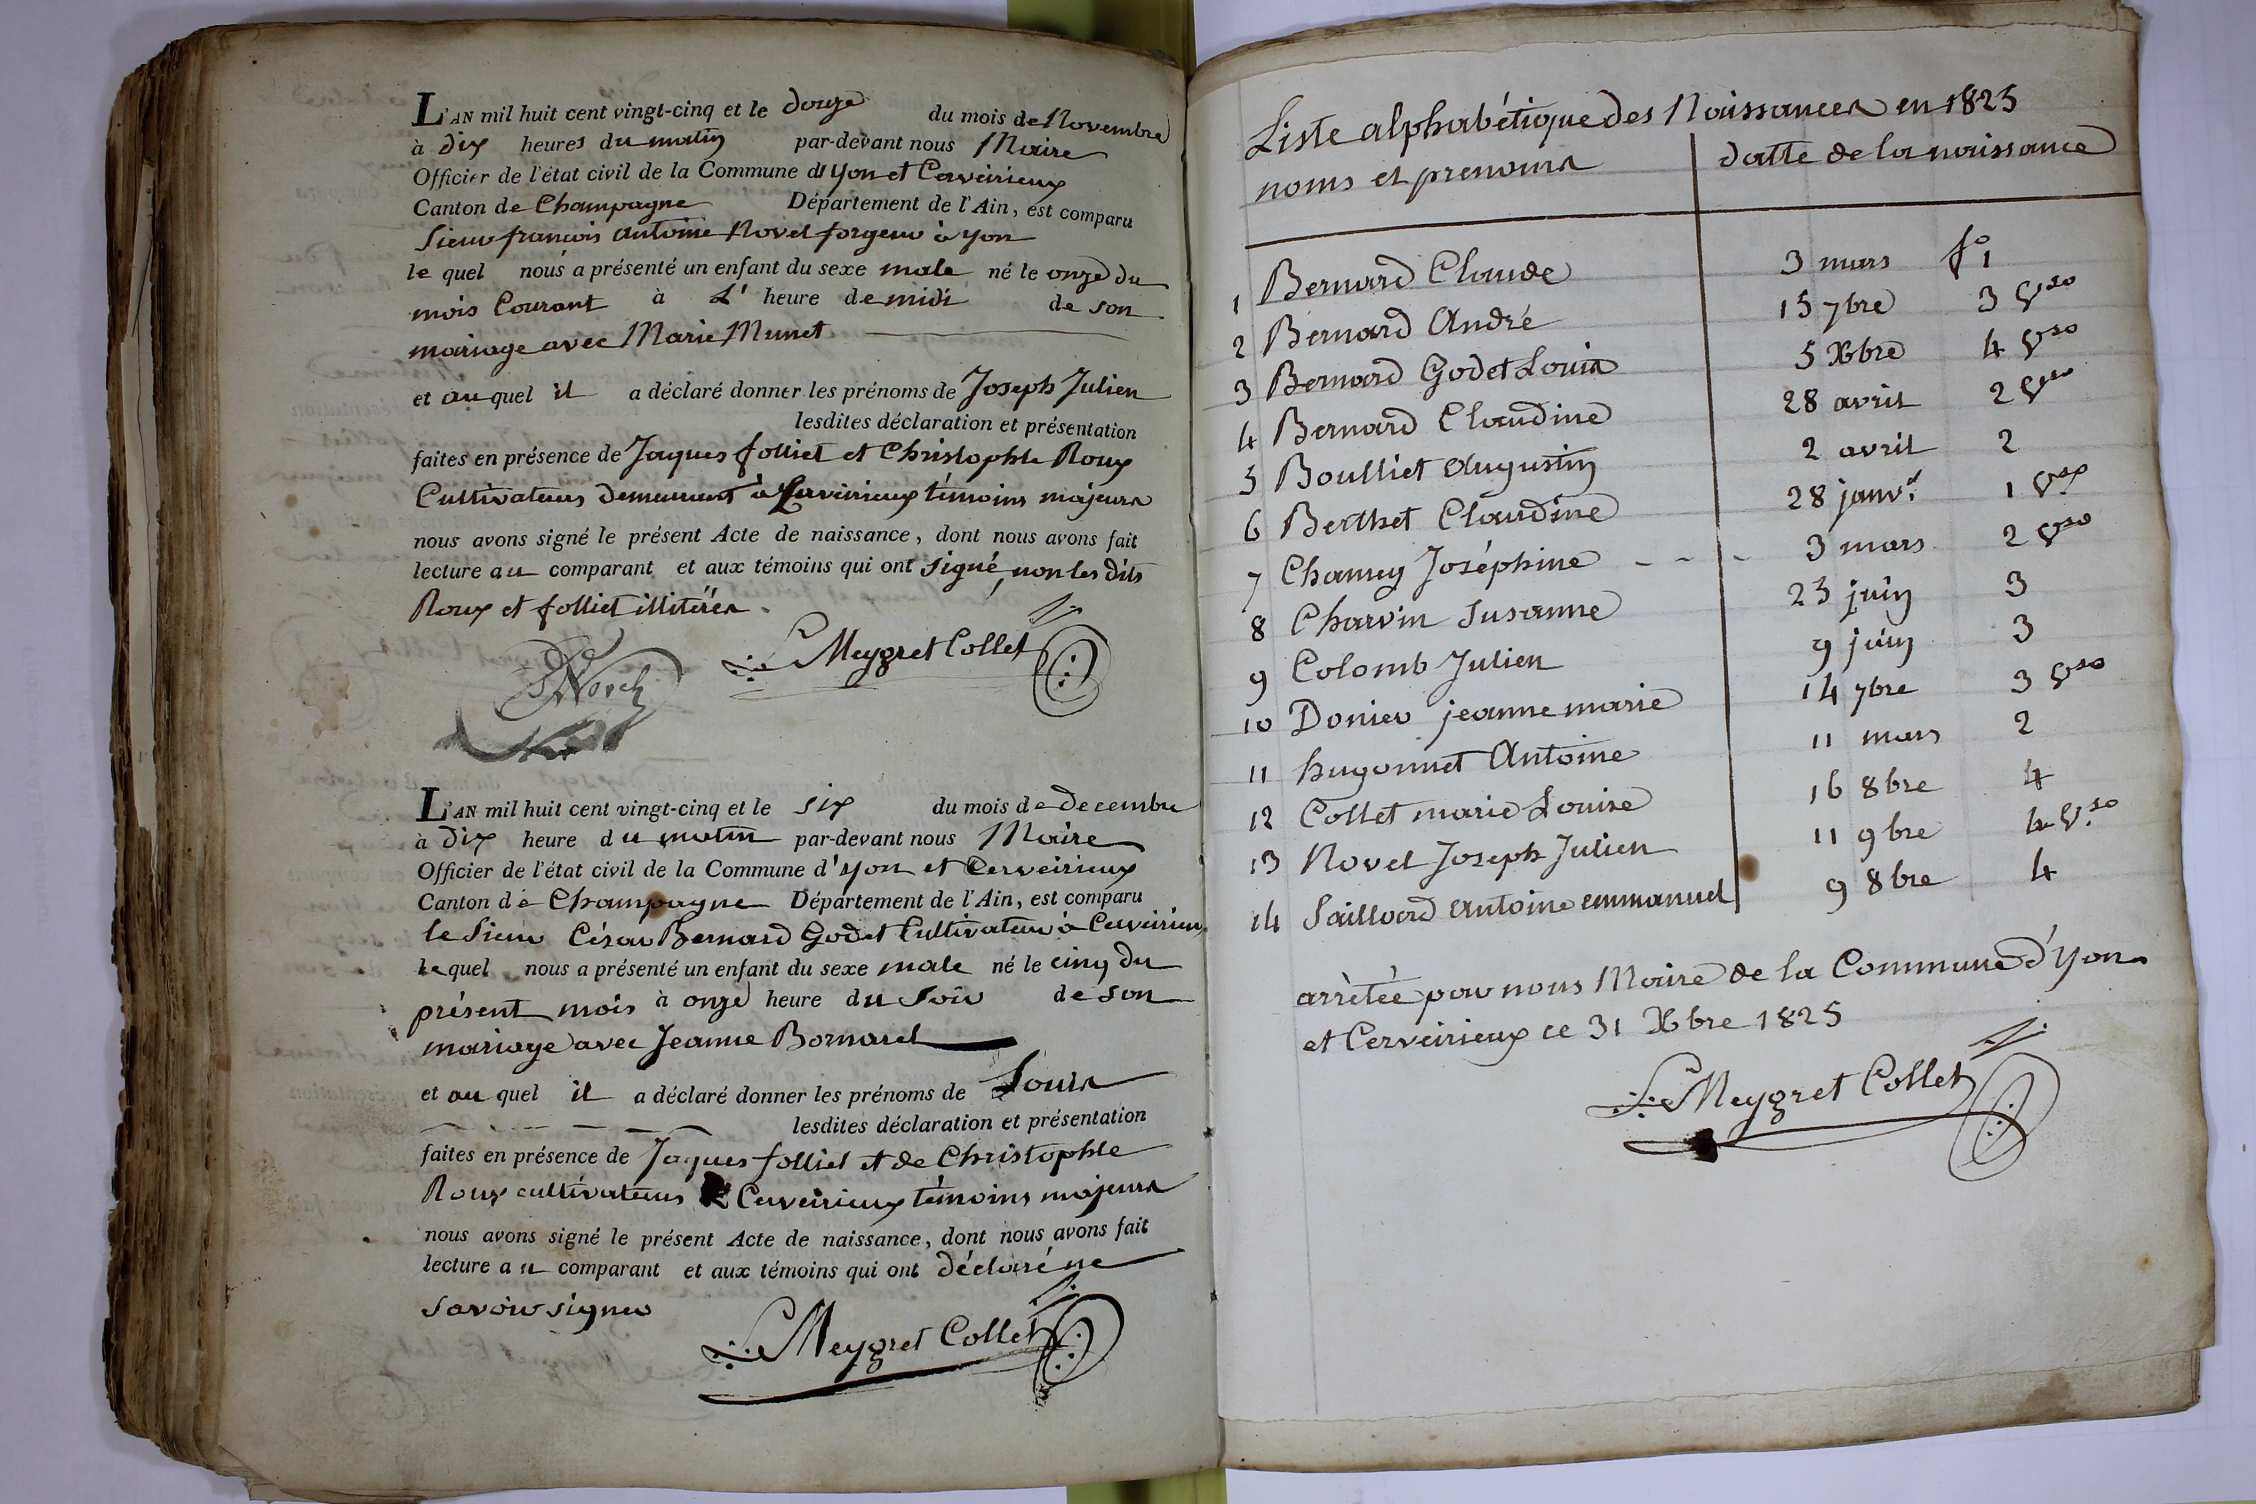 L'AN mil huit cent vingt-cinq et le douze du mois de Novembre
à dix heures du matin par-devant nous Maire
Officier de l'état civil de la Commune d'yon et Cerveirieux
Canton de Champagne Département de l'Ain, est comparu
Sieur françois antoine Novel forgeur à yon
le quel nous a présenté un enfant du sexe male né le onze du
mois Courant à L' heure de midi de son
mariage avec Marie Munet
et au quel il a déclaré donner les prénoms de Joseph Julien
lesdites déclaration et présentation
faites en présence de Jaques folliet et Christophle Roux
Cultivateurs demeurant à Cerveirieux témoins majeurs
nous avons signé le présent Acte de naissance, dont nous avons fait
lecture au comparant et aux témoins qui ont signé, non les dits
Roux et folliet illitérés.
Meygret Collet
L'AN mil huit cent vingt-cinq et le six du mois de decembre
à dix heure du matin par-devant nous Maire
Officier de l'état civil de la Commune d'yon et Cerveirieux
Canton de Champagne Département de l'Ain, est comparu
le Sieur César Bernard Godet Cultivateur à Cerveirieux
le quel nous a présenté un enfant du sexe male né le cinq du
présent mois à onze heure du Soir de son
mariage avec Jeanne Bornard
et au quel il a déclaré donner les prénoms de Louis
lesdites déclaration et présentation
faites en présence de Jaques folliet et de Christophle
Roux cultivateurs Cerveirieux témoins majeurs
nous avons signé le présent Acte de naissance, dont nous avons fait
lecture au comparant et aux témoins qui ont déclaré ne
savoir signer
Meygret Collet
Liste alphabétique des Naissances en 1825
noms et prenoms datte de la naissance
1 Bernard Claude 3 mars fo 1
2 Bernard André 15 7bre 3 Vso
3 Bernard Godet Louis 5 Xbre 4 Vso
4 Bernard Claudine 28 avril 2 Vso
5 Boulliet Augustin 2 avril 2
6 Berthet Claudine 28 janvr 1 Vso
7 Chamey Joséphine - - - 3 mars 2 Vso
8 Charvin Susanne 23 juin 3
9 Colomb Julien 9 juin 3
10 Donier jeanne marie 14 7bre 3 Vso
11 hugonnet Antoine 11 mars 2
12 Collet marie Louise 16 8bre 4
13 Novel Joseph Julien 11 9bre 4 Vso
14 Saillard antoine emmanuel 9 8bre 4
arrêtée par nous Maire de la Commune d'Yon
et Cerveirieux ce 31 Xbre 1825
Meygret Collet